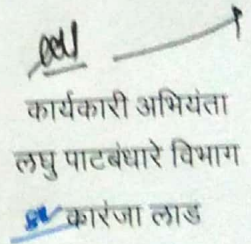 कार्यकारी अभियंता
लघु पाटबंधारे विभाग
कारंजा लाड